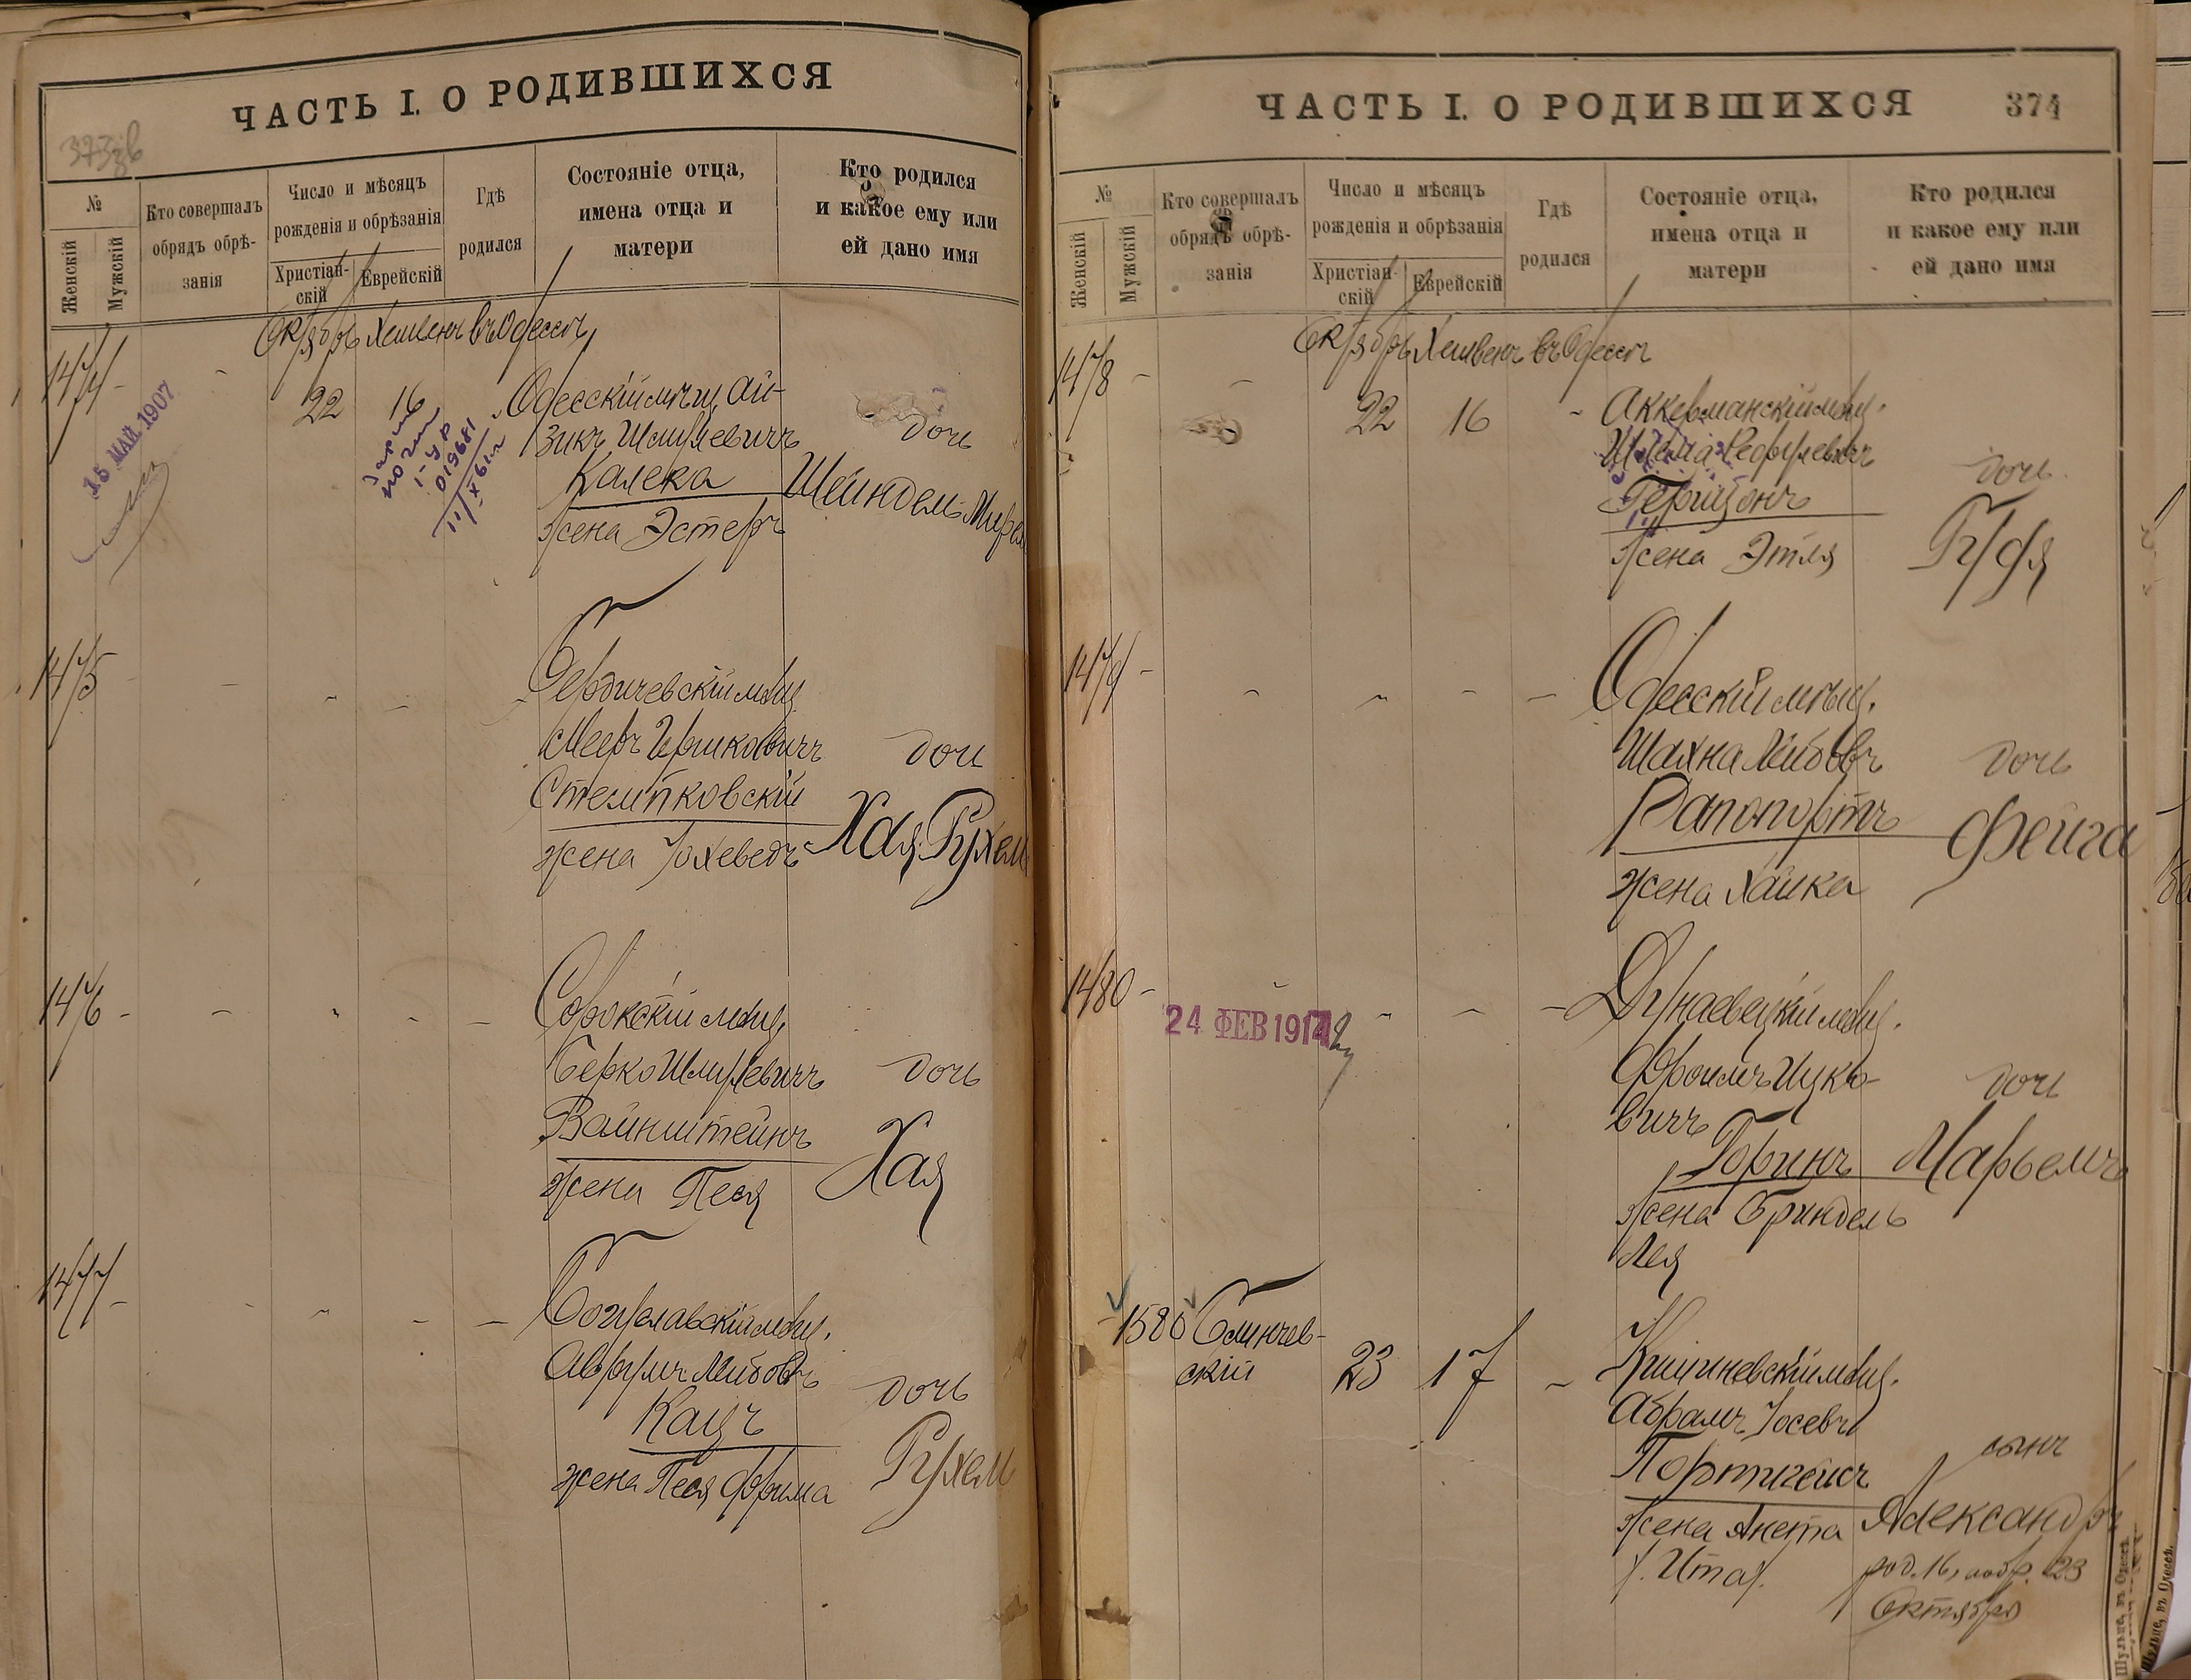 ЧАСТЬ I. О РОДИВШИХСЯ
№
Женскій
Мужскій
Кто совершалъ
обрядъ обрѣ-
занія
Число и мѣсяцъ
рожденія и обрѣзанія
Христіан-
скій
Еврейскій
Гдѣ
родился
Состояніе отца,
имена отца и
матери
Кто родился
и какое ему или
ей дано имя
Октябрь Хешвенъ въ Одессѣ
1474 - - 22 16 - Одесскій мѣщ. Ай-
зикъ Шмулевичъ дочь
Калека Шейндель-Мирель
жена Эстеръ
15 МАЙ 1907
019681
1475 - - - - - Бердичевскій мѣщ.
Мееръ Гершковичъ дочь
Стемпковскій
жена Іохеведъ Хая Рухель
1476 - - - - - Сорокскій мѣщ.
Берко Шмулевичъ дочь
Вайнштейнъ Хая
жена Песя
1477 - - - - - Богуславскій мѣщ.
Аврумъ Лейбовъ дочь
Кацъ
жена Песя Фрима Рухель
ЧАСТЬ I. О РОДИВШИХСЯ 374
№
Женскій
Мужскій
Кто совершалъ
обрядъ обрѣ-
занія
Число и мѣсяцъ
рожденія и обрѣзанія
Христіан-
скій
Еврейскій
Гдѣ
родился
Состояніе отца,
имена отца и
матери
Кто родился
и какое ему или
ей дано имя
Октябрь Хешвенъ въ Одессѣ
1478 - - 22 16 - Аккерманскій мѣщ.
Шлема дочь
Гершзонъ
жена Этля Руфя
1479 - - - - - Одесскій мѣщ.
Шахна Лейбовъ дочь
Рапопортъ Фейга
жена Хайка
1480 - - - - - Дунаевецкій мѣщ.
24 ФЕВ 1917
Фроимъ Ицко- дочь
вичъ
Горинъ Марьемъ
жена Бриндель
Лея
1580 Блинчев-
скій 23 17 - Кишиневскій мѣщ.
Абрамъ Іосевъ
сынъ
Португейсъ
жена Анета Александръ
Ита род. 16, 23
Октября
Шульце, въ Одессѣ.